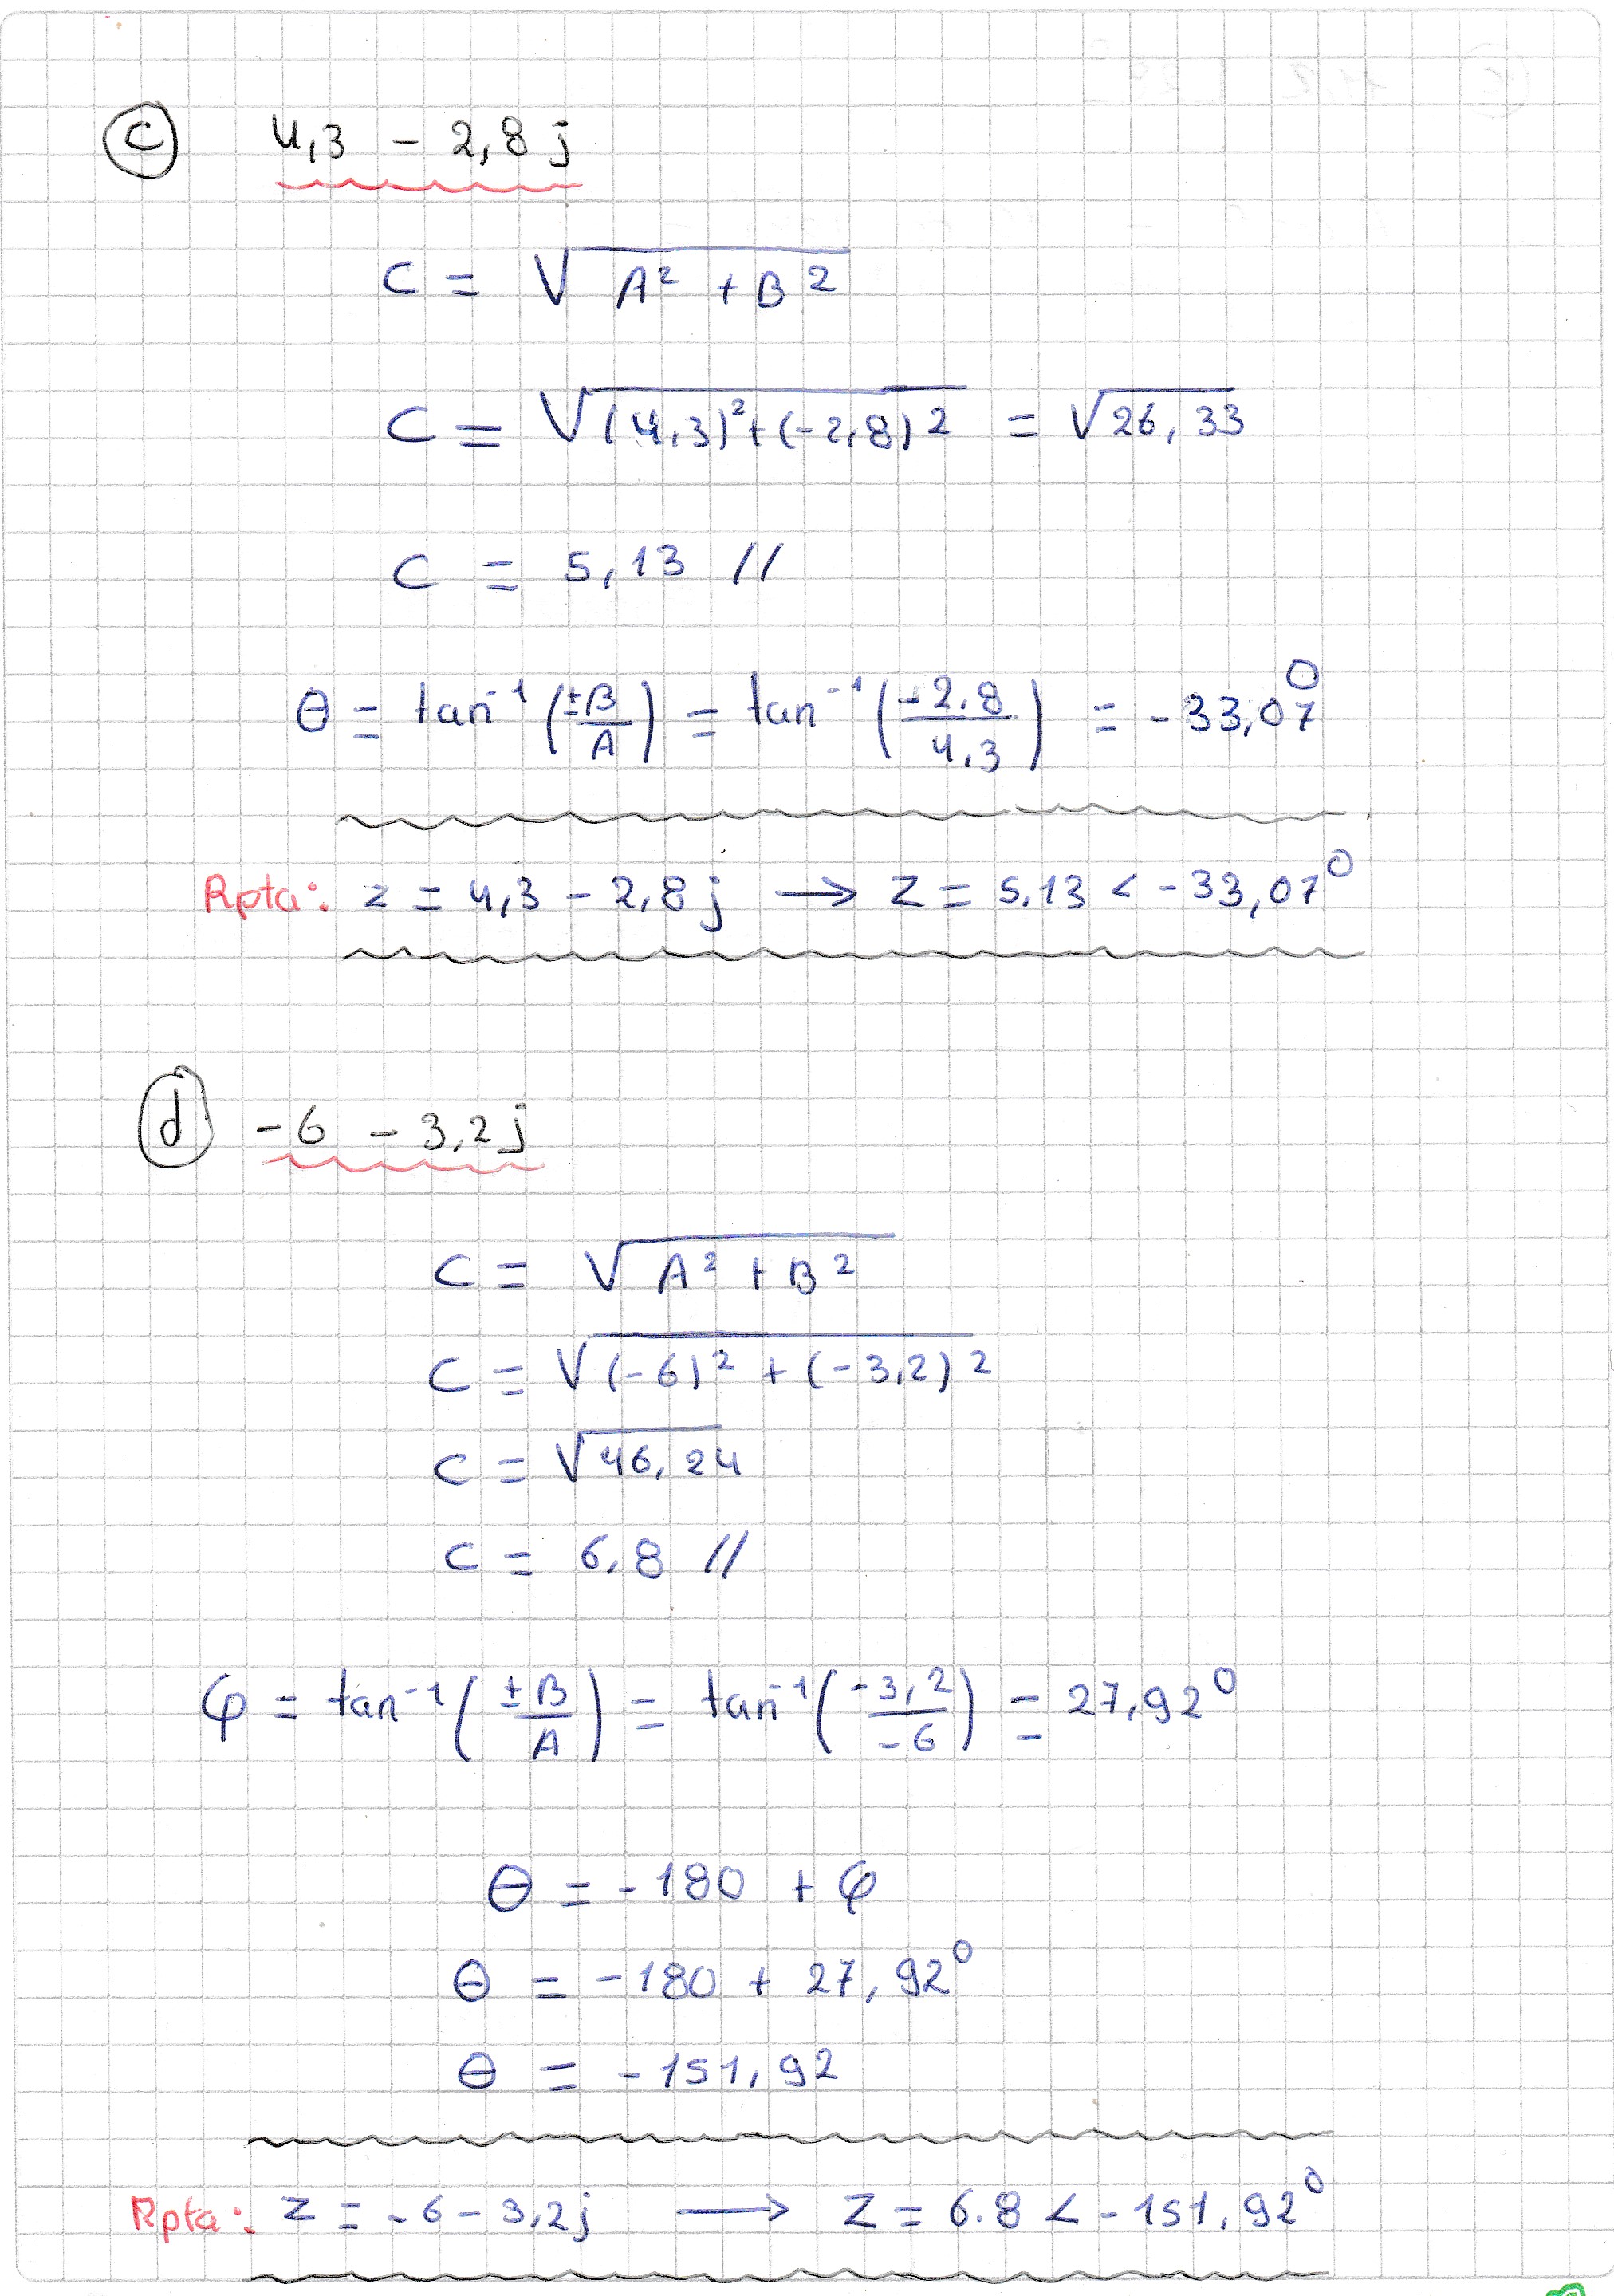 c 4,3 - 2,8j
C = √(A² + B²)
C = √((4,3)² + (-2,8)²) = √26,33
C = 5,13 //
θ = tan⁻¹(±B/A) = tan⁻¹(-2,8/4,3) = -33,07°
Rpta: z = 4,3 - 2,8j → Z = 5,13 < -33,07°
d -6 - 3,2j
C = √(A² + B²)
C = √((-6)² + (-3,2)²)
C = √46,24
C = 6,8 //
φ = tan⁻¹(±B/A) = tan⁻¹(-3,2/-6) = 27,92°
θ = -180 + φ
θ = -180 + 27,92°
θ = -151,92
Rpta: z = -6 - 3,2j → Z = 6.8 < -151,92°